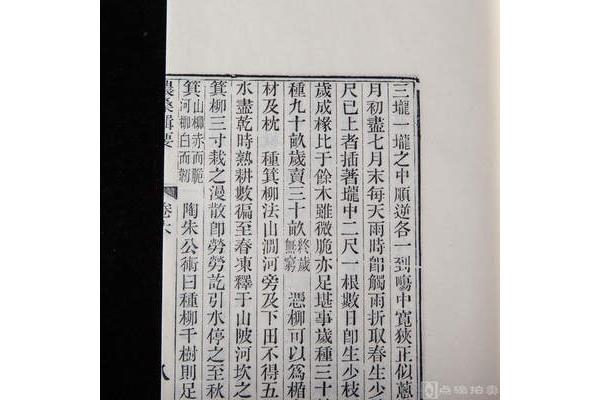 三壠一壠之中順逆各一到㽊中寬狹正似蔥
月初盡七月末每天雨時即觸雨折取春生少
尺已上者插著壠中二尺一根數日即生少枝
歲成椽比于餘木雖微脆亦足堪事歲種三十
種九十畝歲賣三十畝終歲無窮 憑柳可以為楯
材及枕 種箕柳法山澗河旁及下田不得五
水盡乾時熟耕數徧至春凍釋于山陂河坎之
箕柳三寸栽之漫散即勞勞訖引水停之至秋
箕山柳赤而脆河柳白而韌 陶朱公術曰種柳千樹則足
農桑輯要 卷六 八
点端拍卖